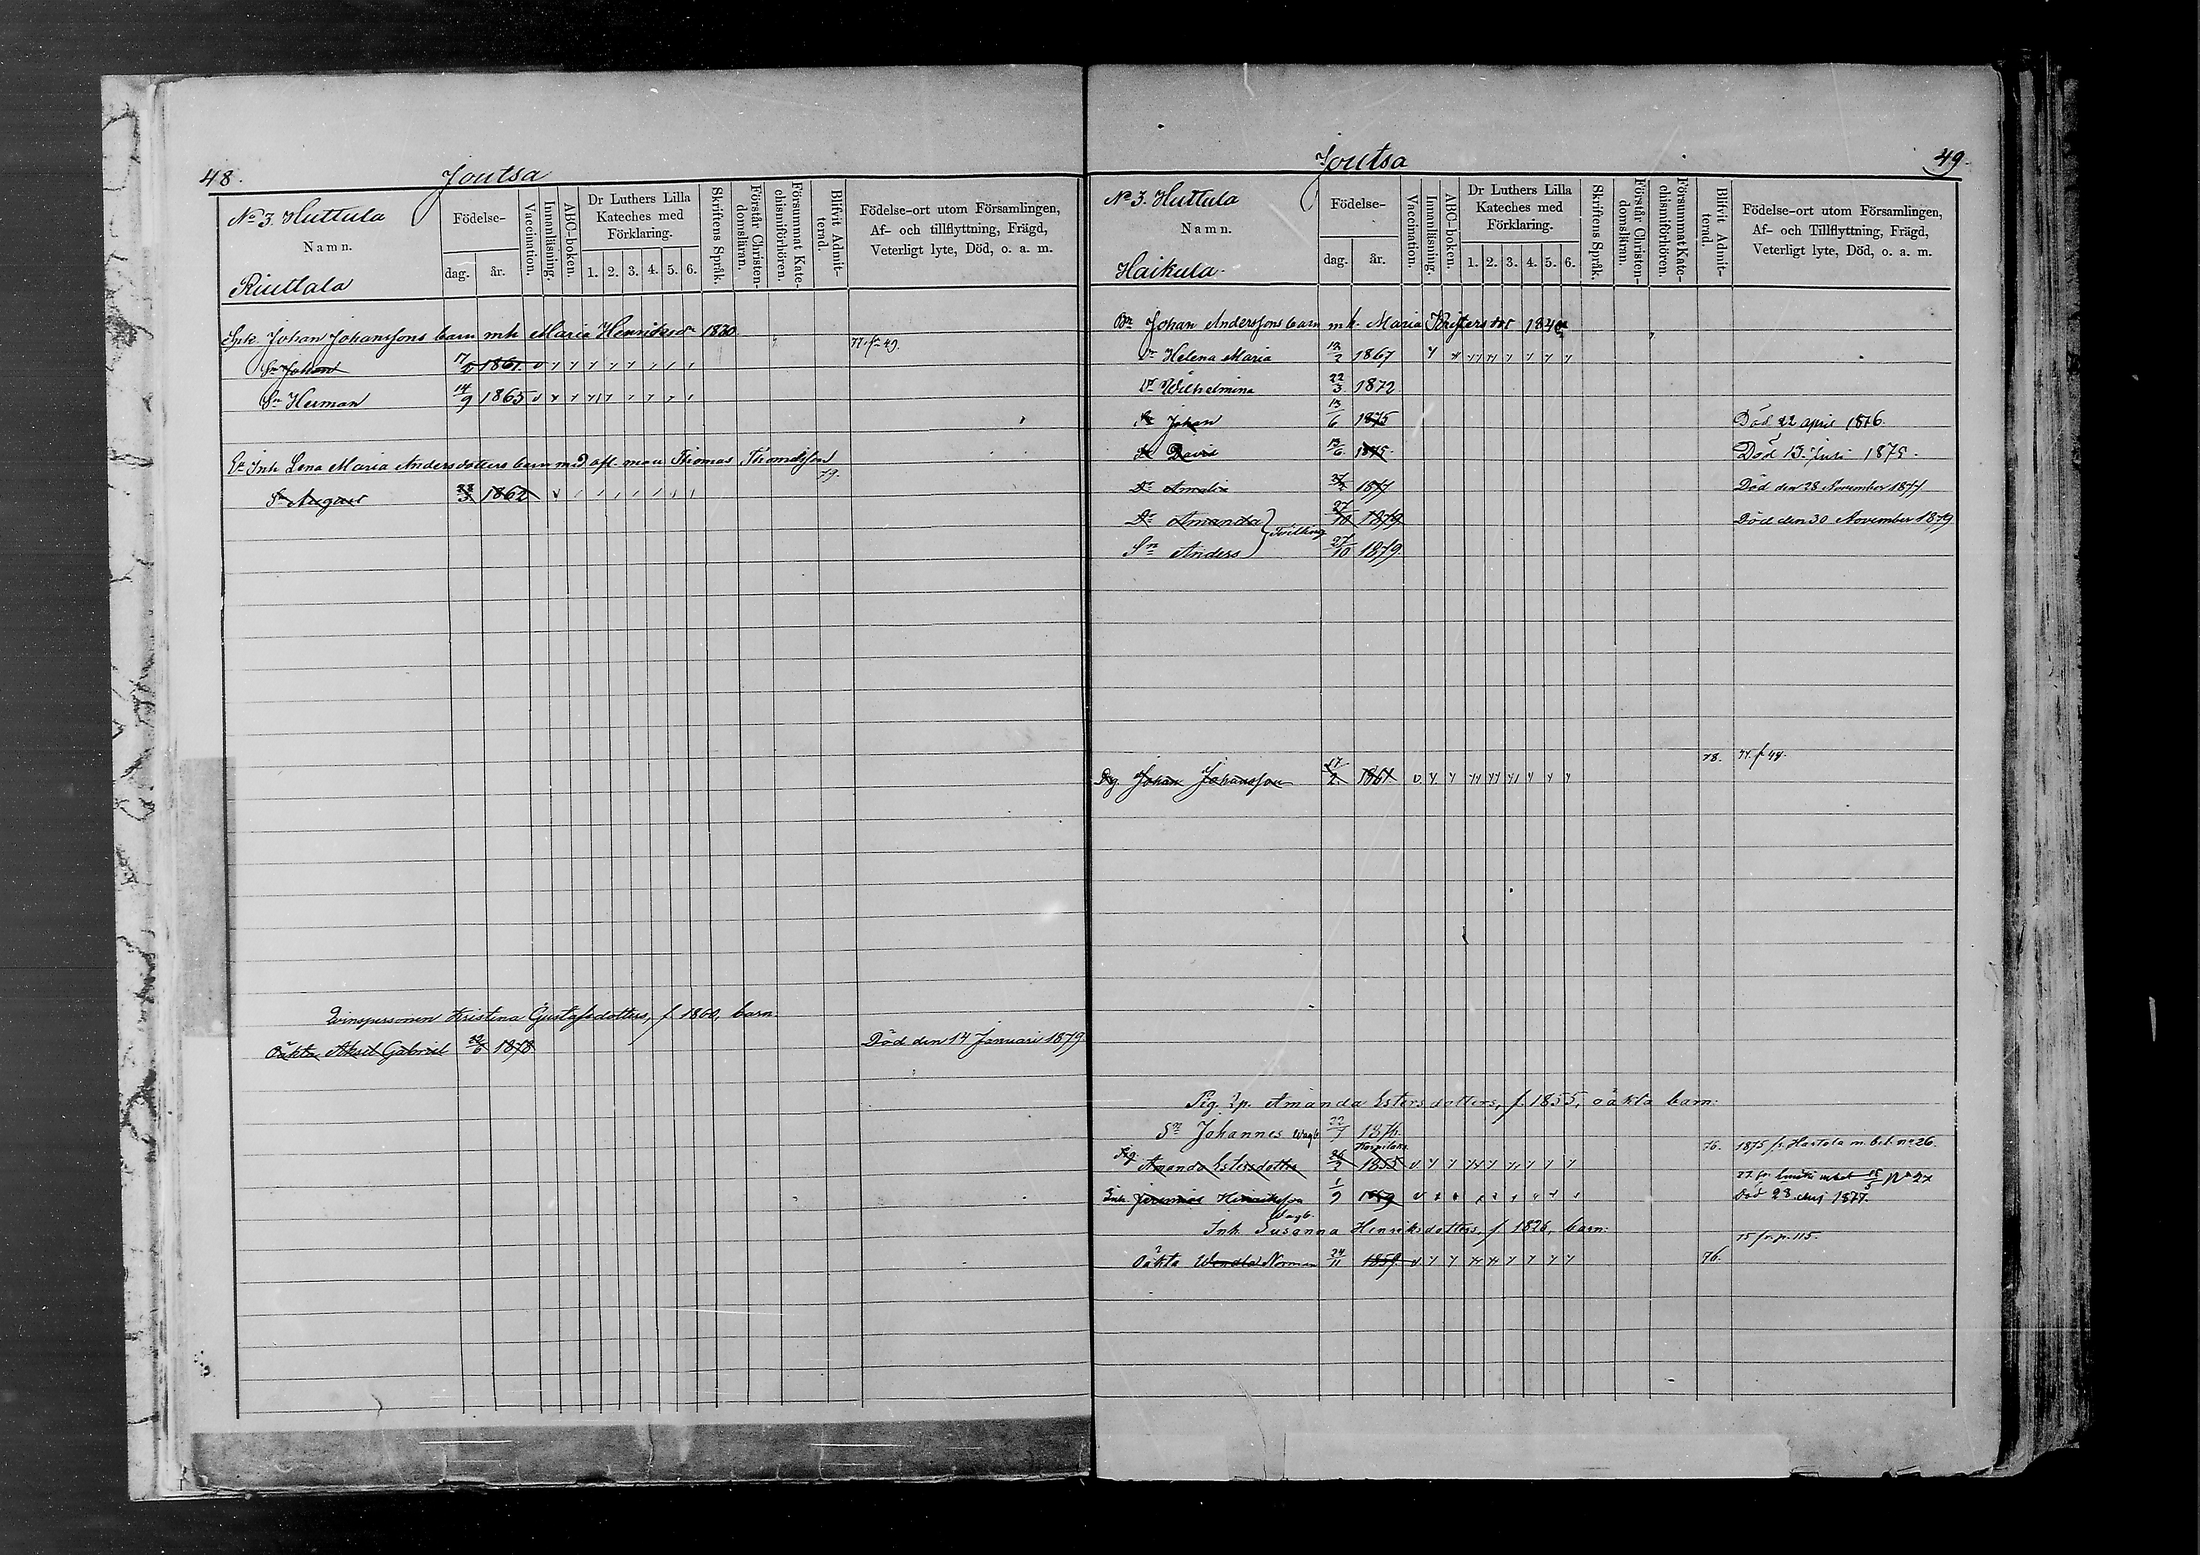 48.
Joutsa
No 3. Huttula
Namn.
Riuttala
Födelse-
dag.
år.
Vaccination.
Innanläsning.
ABC-boken.
Dr Luthers Lilla
Kateches med
Förklaring.
1. 2. 3. 4. 5. 6.
Skriftens Språk.
Förstår Christen-
domsläran.
Försummat Kate-
chismiförhören.
Blifvit Admit-
terad.
Födelse-ort utom Församlingen,
Af- och tillflyttning, Frägd,
Veterligt lyte, Död, o. a. m.
Johan Johanssons barn mh Maria Henriksdr 1830
Sn Johan 17/2 1861 77 fr 49.
Sn Herman 14/9 1865
Inh Lena Maria Andersdotters barn md afl. man Thomas Thomasson
Sn August 1862 79.
Qvinspersonen Kristina Gustafsdotters, f 1860, barn
Oäkta Aksel Gabriel 1878 Död den 14 Januari 1879
49.
Joutsa
No 3. Huttula
Namn.
Haikula.
Födelse-
dag.
år.
Vaccination.
Innanläsning.
ABC-boken.
Dr Luthers Lilla
Kateches med
Förklaring.
1. 2. 3. 4. 5. 6.
Skriftens Språk.
Förstår Christen-
domsläran.
Försummat Kate-
chismiförhören.
Blifvit Admit-
terad.
Födelse-ort utom Församlingen,
Af- och Tillflyttning, Frägd,
Veterligt lyte, Död, o. a. m.
Johan Anderssons barn mh. Maria
Dr Helena Maria 12/2 1867
Dr Wilhelmina 22/3 1872
Sn Johan 13/6 1875 Död 22 april 1876.
Sn David 13/6 1875 Död 13 Juni 1875.
Dr Amalia 1877 Död den 28 November 1877
Dr Amanda 27/10 1879 Död den 30 November 1879
Tvilling
Sn Anders 27/10 1879
78. 77. f 48.
Dg Johan Johansson 17/2 1861
Pig. Amanda Estersdotters, f. 1855, oäkta barn:
Sn Johannes 1876.
Pig Amanda Estersdotter 26/2 1855 76. 1875 fr. Hartola m. bet. no 26.
Inh. Jeremias Henriksson 1/9 1859 Död 23 Maj 1877.
Inh. Susanna Henriksdotters, f 1826, barn:
Oäkta Wendla 24/11 1859 76. 75 fr. p. 115.